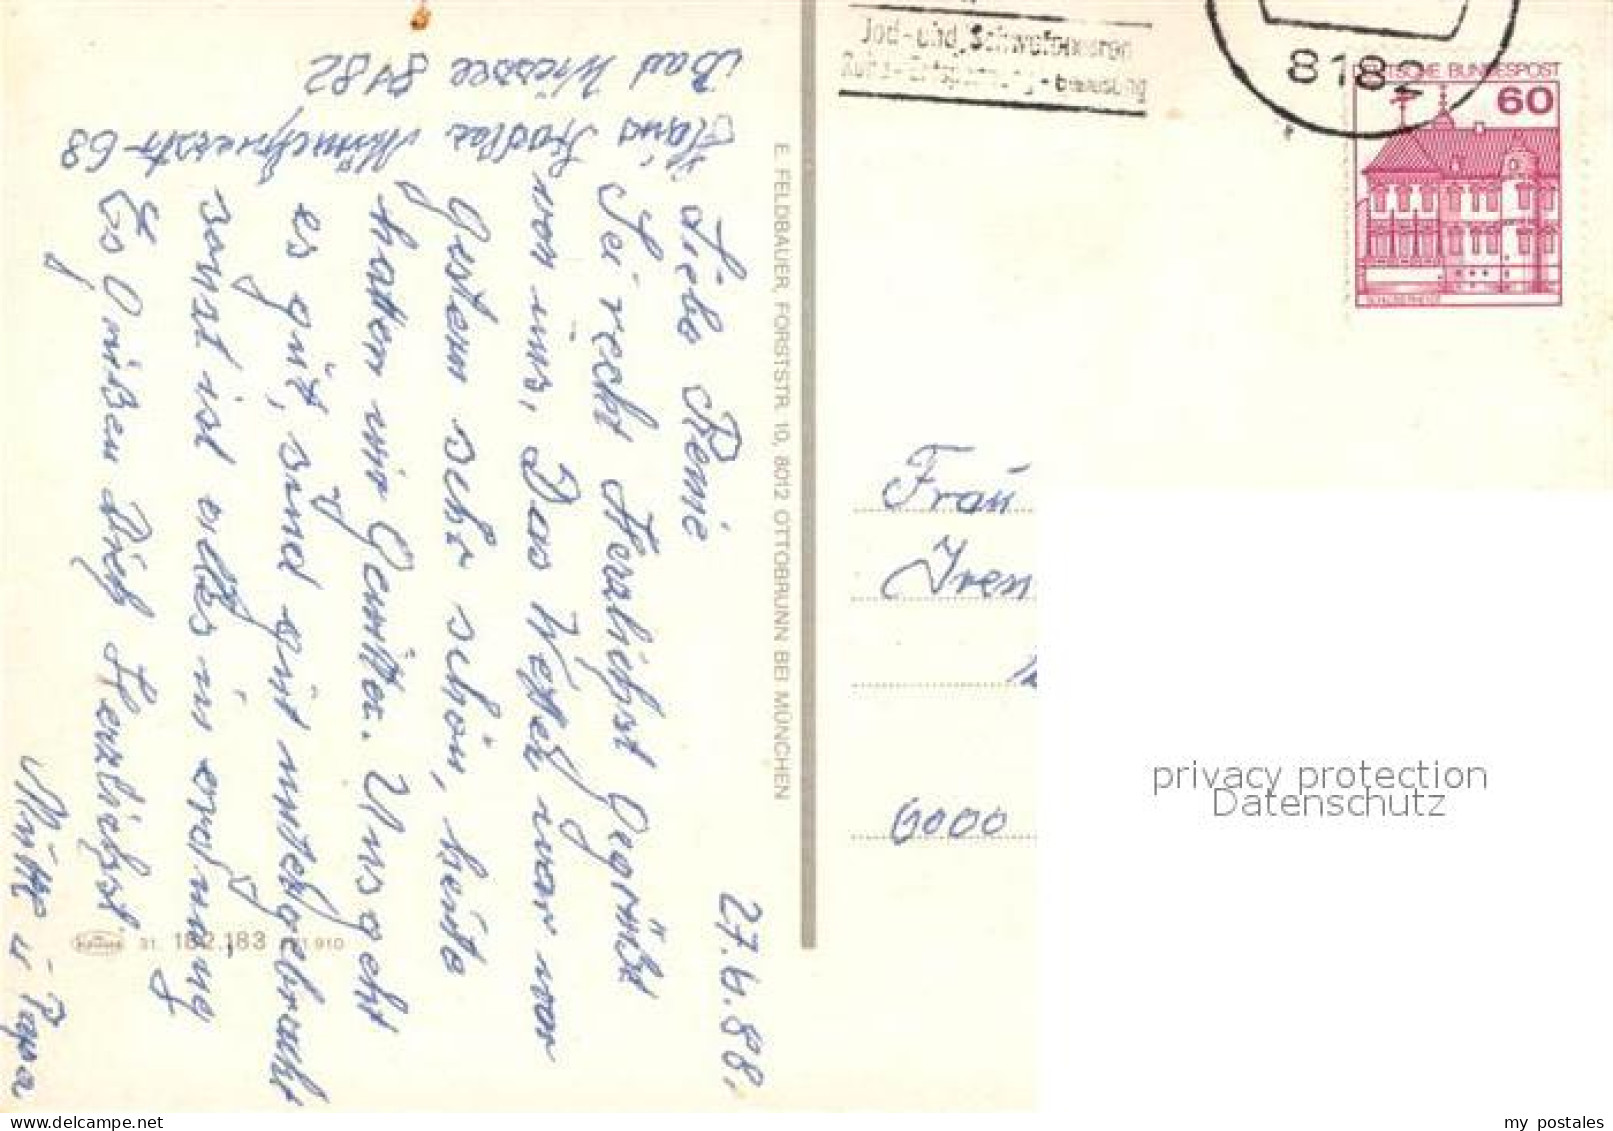 Bad Wiessee 8182
Haus
27.6.88.
Liebe Renie
Sei recht Herzlichst Gegrüßt
von uns, Das Wetter war vor
Gestern sehr schön, heute
hatten wir Gewitter. Uns geht
es gut, sind gut untergebracht
sonst ist alles in ordnung
Es Grüßen Dich Herzlichst
Mutti u Papa
31 182.183 910
E. FELDBAUER, FORSTSTR. 10, 8012 OTTOBRUNN BEI MÜNCHEN
Jod- und Schwefel
8182
DEUTSCHE BUNDESPOST
60
Frau
Iren
6000
privacy protection
Datenschutz
my postales